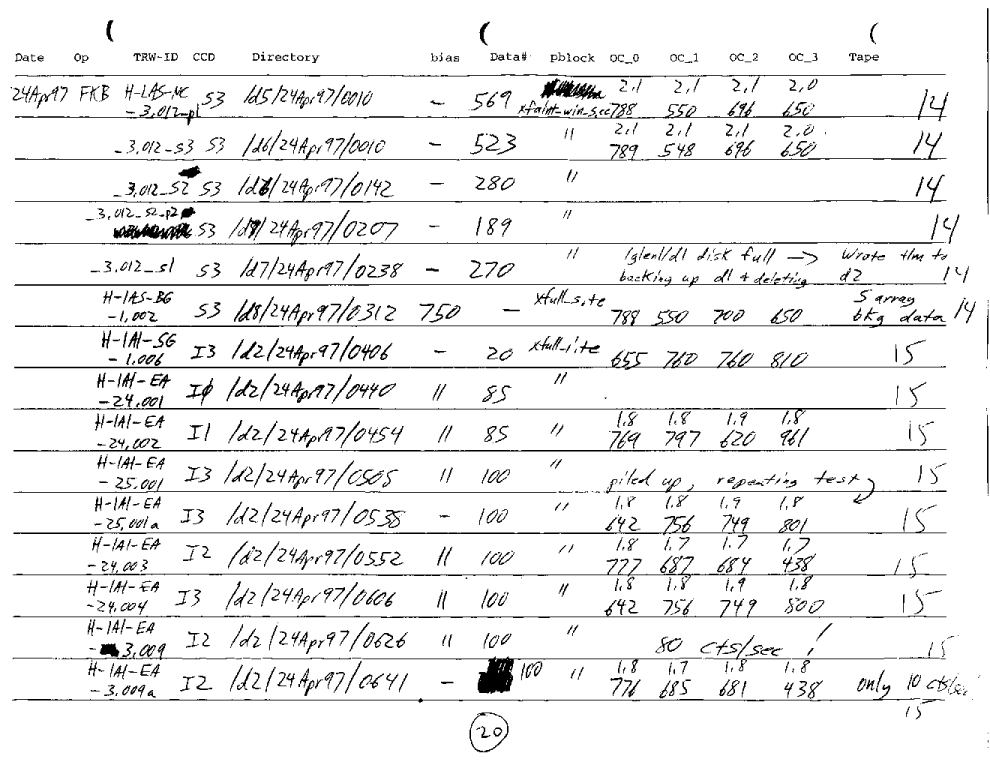 Date Op TRW-ID CCD Directory bias Data# pblock OC_0 OC_1 OC_2 OC_3 Tape
2,1 2,1 2,1 2,0
24Apr97 FKB H-IAS-MC S3 /d5/24Apr97/0010 - 569 14
-3.012-p1 xfaint-win_sec 788 550 696 650
2,1 2,1 2,1 2,0
-3.012-S3 S3 /d6/24Apr97/0010 - 523 " 789 548 696 650 14
-3.012-S2 S3 /d6/24Apr97/0142 - 280 " 14
-3.012_S2_p2 S3 /d8/24Apr97/0207 - 189 " 14
-3.012_s1 S3 /d7/24Apr97/0238 - 270 " /glenl/d1 disk full -> Wrote tlm to
backing up d1 + deleting d2 14
H-IAS-BG xfull_site 5 array
-1.002 S3 /d8/24Apr97/0312 750 - 788 550 700 650 bkg data 14
H-IAI-SG
-1.006 I3 /d2/24Apr97/0406 - 20 xfull-site 655 760 760 810 15
H-IAI-EA
-24.001 I0 /d2/24Apr97/0440 " 85 " 15
H-IAI-EA 1.8 1.8 1.9 1.8
-24.002 I1 /d2/24Apr97/0454 " 85 " 769 797 620 961 15
H-IAI-EA
-25.001 I3 /d2/24Apr97/0505 " 100 " piled up, repeating test 15
H-IAI-EA 1.8 1.8 1.9 1.8
-25.001a I3 /d2/24Apr97/0538 - 100 642 756 749 801 15
H-IAI-EA 1.8 1.7 1.7 1.7
-24.003 I2 /d2/24Apr97/0552 " 100 " 777 687 684 438 15
H-IAI-EA 1.8 1.8 1.9 1.8
-24.004 I3 /d2/24Apr97/0606 " 100 " 642 756 749 800 15
H-IAI-EA
-3.009 I2 /d2/24Apr97/0626 " 100 " 80 cts/sec ! 15
H-IAI-EA 1.8 1.7 1.8 1.8
-3.009a I2 /d2/24Apr97/0641 - 100 " 776 685 681 438 only 10 cts/sec
15
20